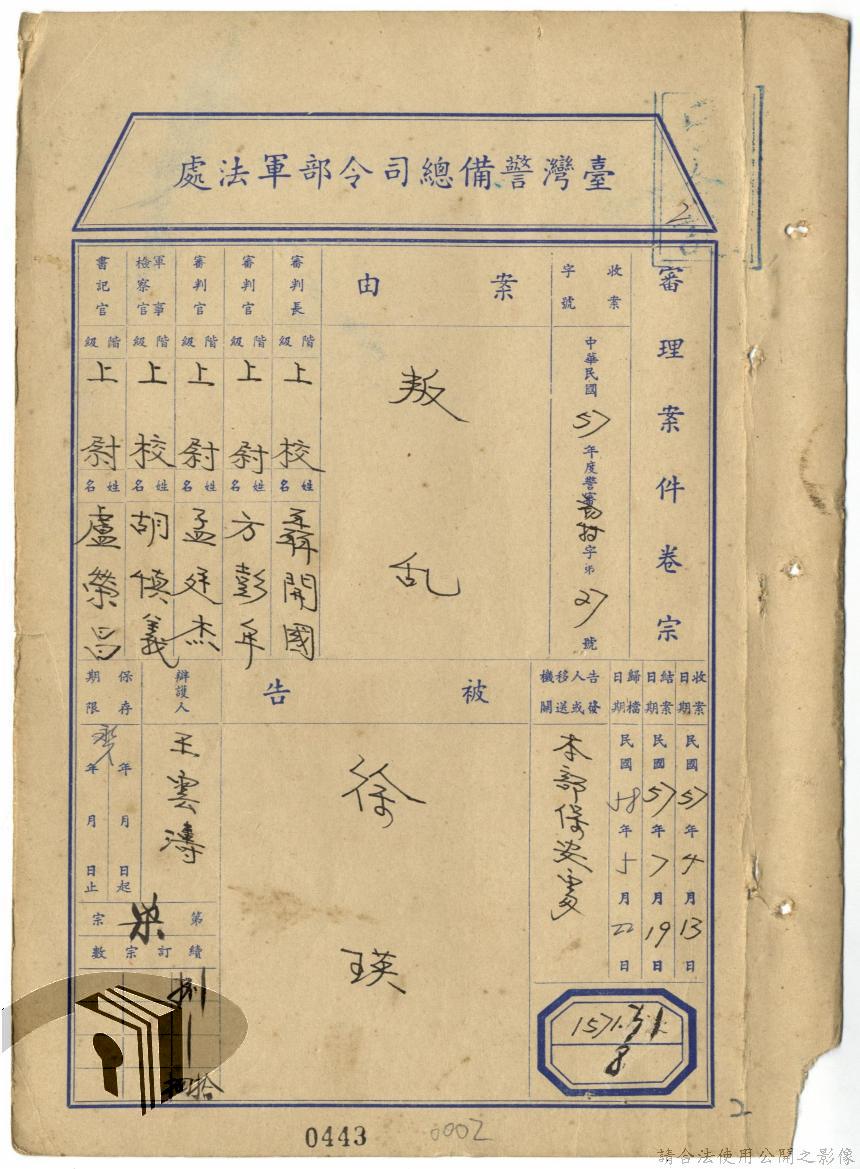 臺灣警備總司令部軍法處
審理案件卷宗
收案字號
中華民國57年度警審字第27號
案由
叛乱
審判長
階級
上校
姓名
聶開國
審判官
階級
上尉
姓名
方彭年
審判官
階級
上尉
姓名
孟廷杰
軍事檢察官
階級
上校
姓名
胡慎義
書記官
階級
上尉
姓名
盧榮昌
收案日期
民國57年4月13日
結案日期
民國57年7月19日
歸檔日期
民國58年5月22日
告發人或移送機關
本部保安處
被告
徐瑛
辯護人
王雲濤
保存期限
年月日起
年月日止
第柒宗
續訂宗數
捌
1571.
8
2
2
0443
0002
請合法使用公開之影像